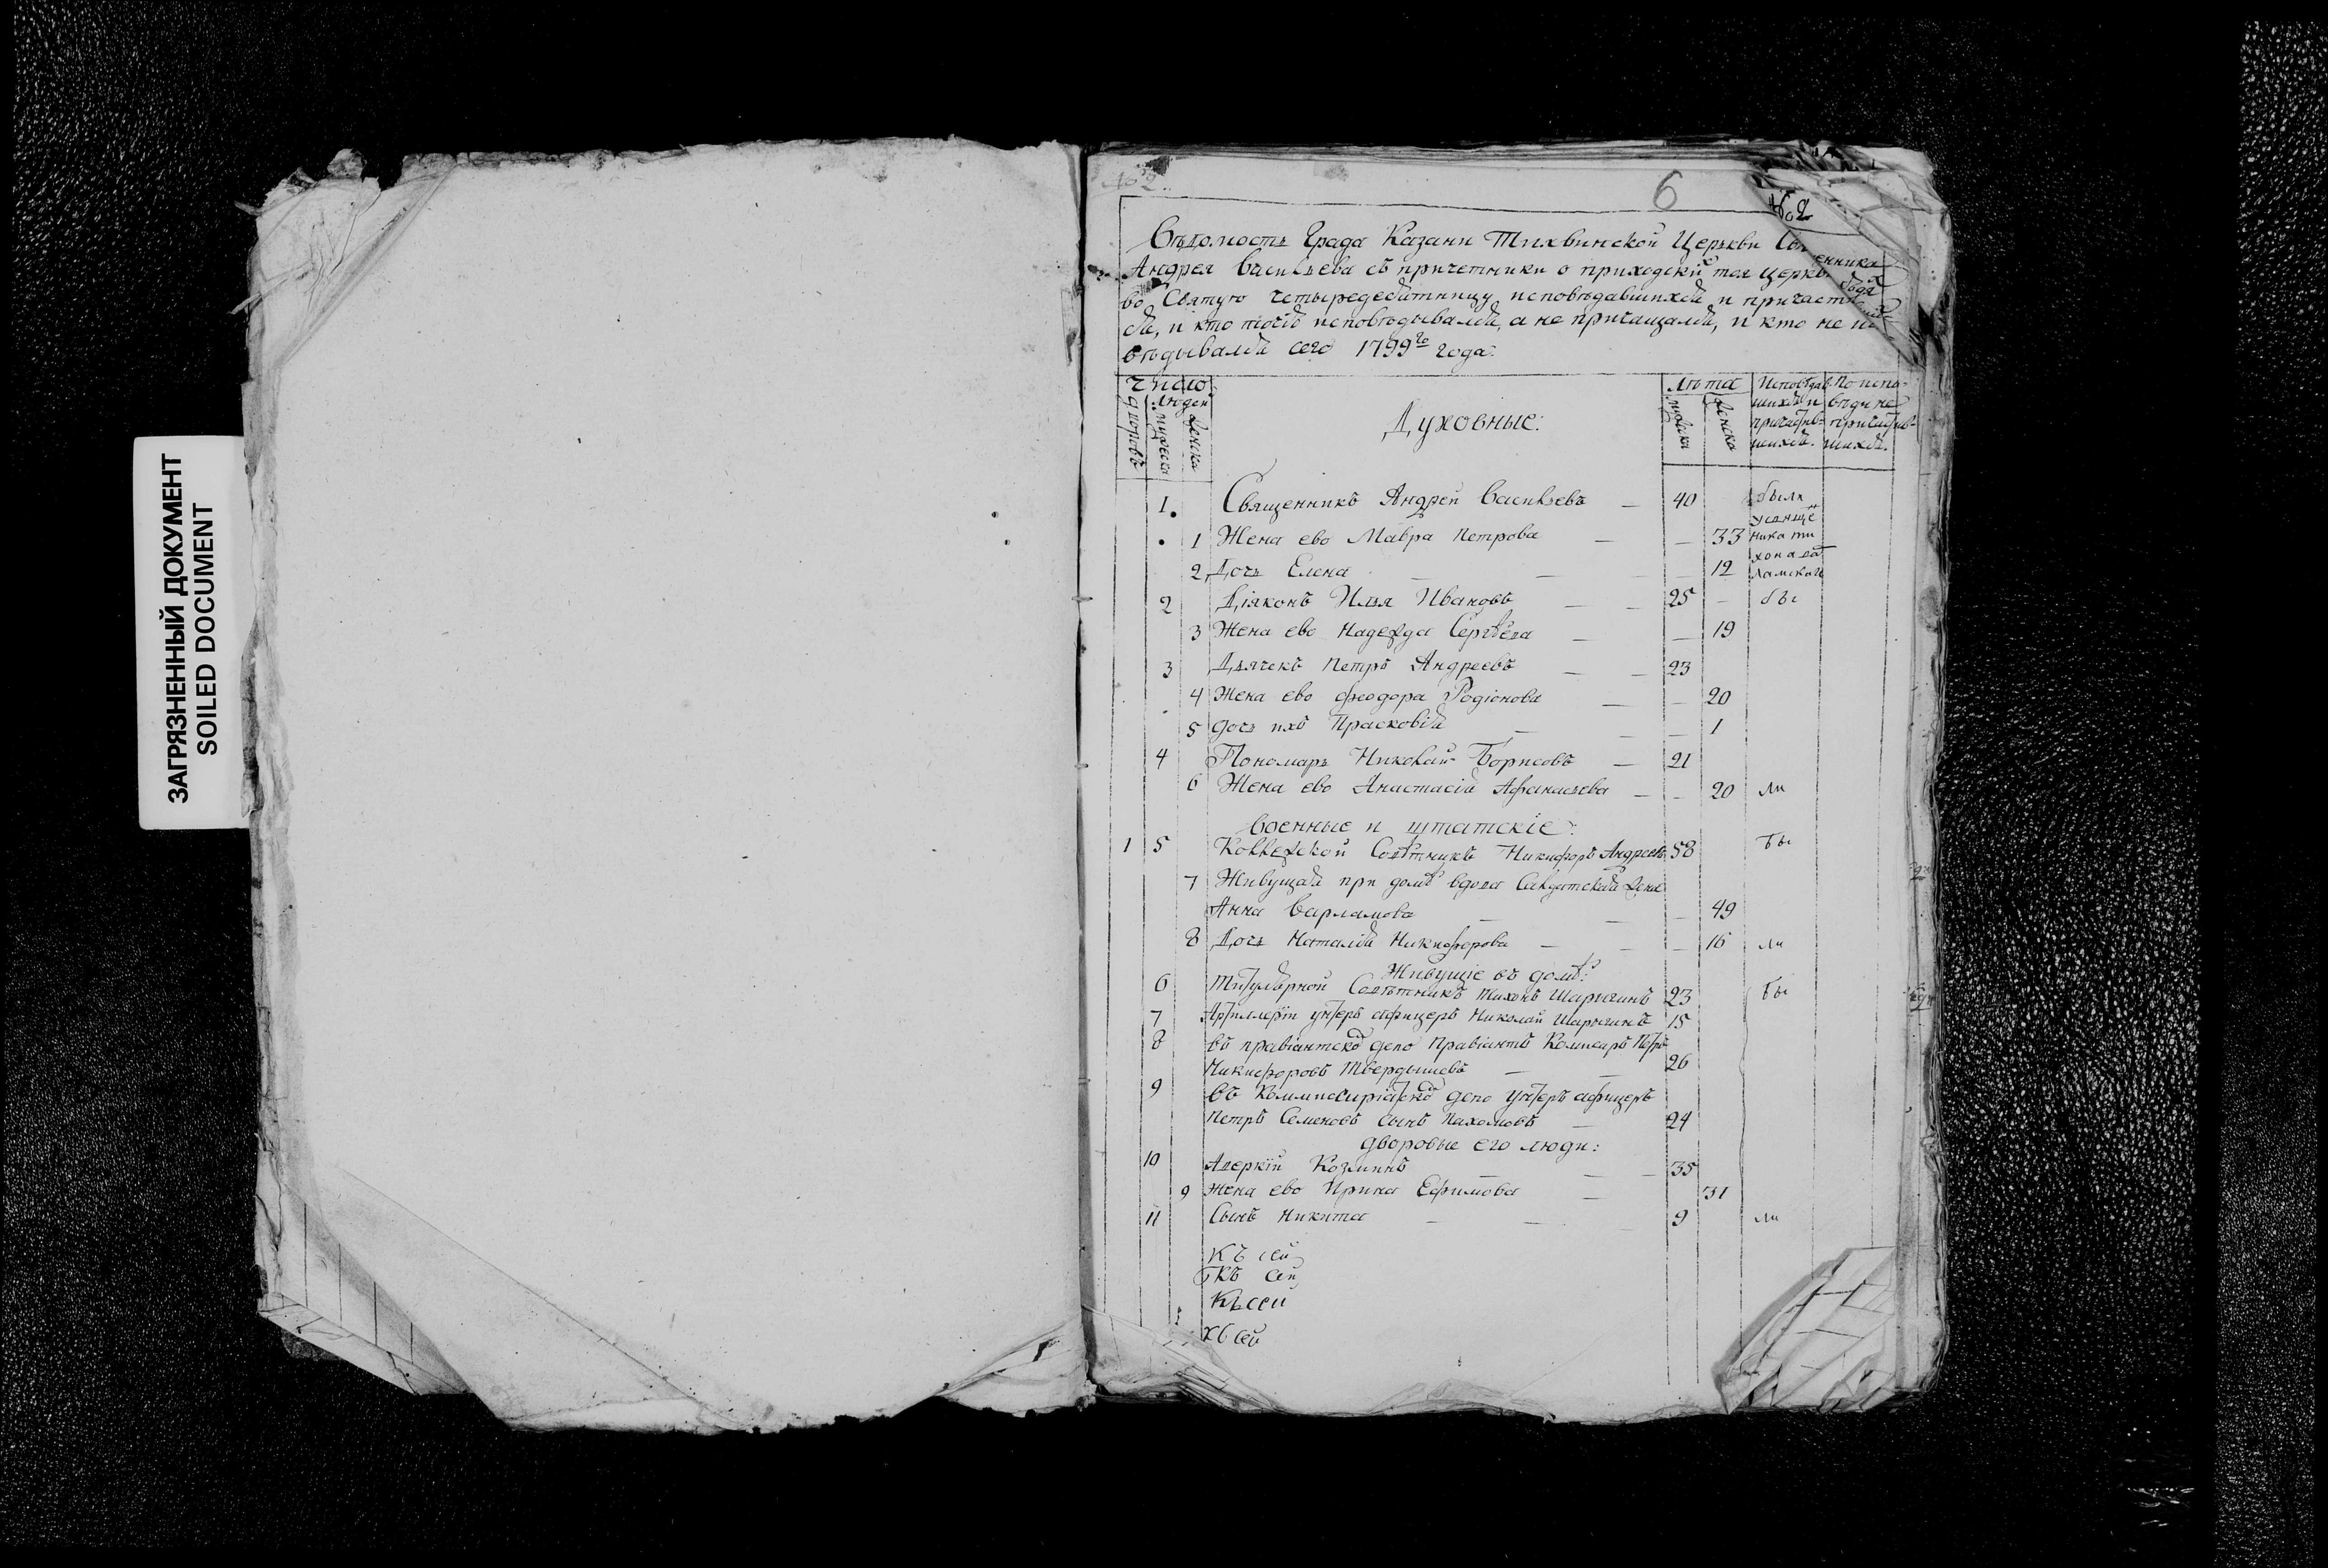 ЗАГРЯЗНЕННЫЙ ДОКУМЕНТ
SOILED DOCUMENT
6
№ 2
Вѣдомость Града Казани Тихвинской Церькви
Андрея Васильева съ причетники о приходскихъ тоя церкви
во Святую четыредесятницу исповѣдавшихся и причаст
ся, и кто токмѡ исповѣдывался, а не причащался, и кто не ис
вѣдывался сего 1799го года.
Число
Людей
Дворовъ
Мужеска
Женска
Духовные:
Лѣта
Мужеска
Женска
Исповѣдав
шихся и
причастив=
шихся.
По испо=
вѣди не
причастив=
шихся.
1. Священникъ Андрей Васильевъ — 40 были
у священ
ника ти
хона
1 Жена ево Мавра Петрова — — 33
2 Дочь Елена — — 12
2 Діяконъ Илья Ивановъ — — 25 — бы
3 Жена ево Надежда Сергѣева — — 19
3 Дьячекъ Петръ Андреевъ — — 23
4 Жена ево Феодора Родіонова — — 20
5 дочь ихъ Прасковія — — — 1
4 Пономарь Николай Борисовъ — 21
6 Жена ево Анастасія Афанасьева — — 20 ли
Военные и штатскіе:
1 5 Коллежской Совѣтникъ Никифоръ Андреевъ 58 бы
7 Живущая при домѣ вдова Салдатская жена
Анна Варламова — — — 49
8 Дочь Наталія Никифорова — — — 16 ли
Живущіе въ домѣ:
6 Титулярной Совѣтникъ Тихонъ Шарыгинъ 23 бы
7 Артиллеріи унтеръ афицеръ Николай Шарыгинъ 15
8 Въ правіантскомъ депо Правіантъ Комисаръ Петръ
Никифоровъ Твердышевъ — — 26
9 Въ Коммисаріатскомъ депо унтеръ афицеръ
Петръ Семеновъ сынъ Пахомовъ — 24
дворовые его люди:
10 Аверкій Козминъ — — 35
9 Жена ево Ирина Ефимова — 31
11 Сынъ Никита — — 9 ли
Къ сей
Къ сей
Къ сей